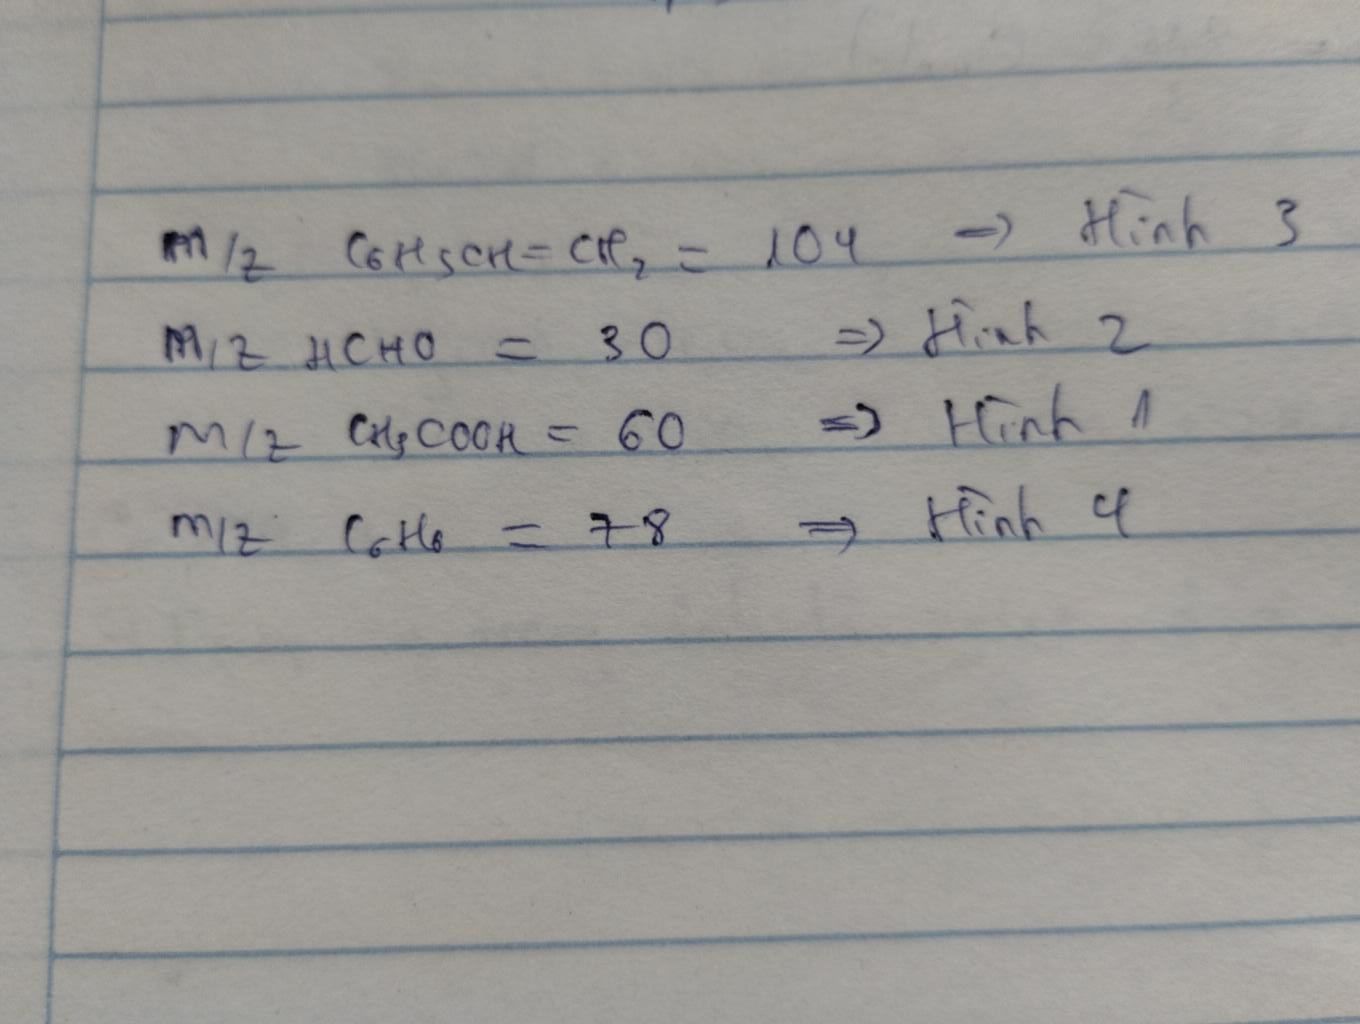 m/z C6H5CH=CH2 = 104 => Hình 3
m/z HCHO = 30 => Hình 2
m/z CH3COOH = 60 => Hình 1
m/z C6H6 = 78 => Hình 4